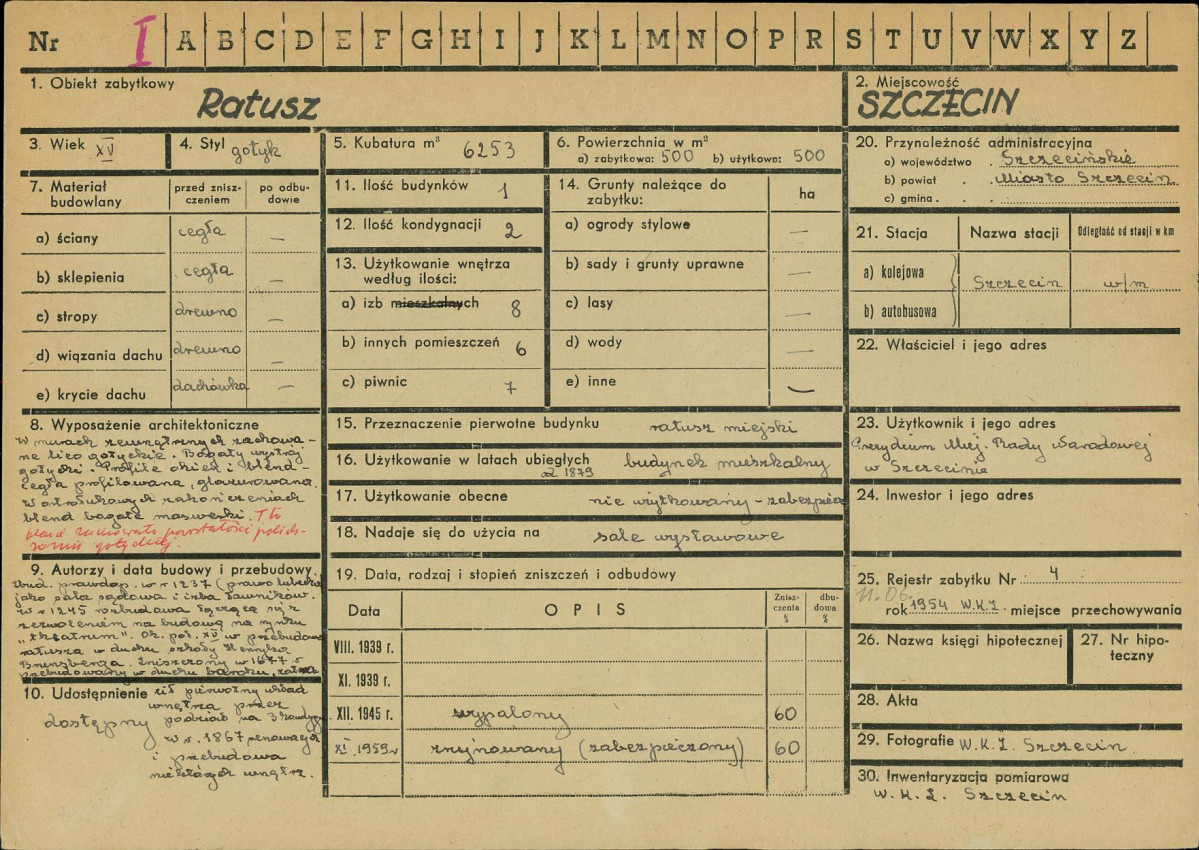 Nr I A B C D E F G H I J K L M N O P R S T U V W X Y Z
1. Obiekt zabytkowy
Ratusz
2. Miejscowość
SZCZECIN
3. Wiek XV
4. Styl gotyk
5. Kubatura m³ 6253
6. Powierzchnia w m²
a) zabytkowa: 500 b) użytkowa: 500
7. Materiał budowlany
przed zniszczeniem
po odbudowie
a) ściany cegła —
b) sklepienia cegła —
c) stropy drewno —
d) wiązania dachu drewno —
e) krycie dachu dachówka —
8. Wyposażenie architektoniczne
W murach zewnątrznych zachowa-
ne lico gotyckie. Bogaty wystrój
gotycki. Profile okien i blend -
cegła profilowana, glazurowana.
W ostrołukowych zakończeniach
blend bogate maswerki. Tło
blend
gotyckiej.
9. Autorzy i data budowy i przebudowy
Zbud. prawdop. w r 1237 (prawo lubeckie
jako sala sądowa i izba ławników.
W r 1245 rozbudowa łącząca się z
zezwoleniem na budową na rynku
"theatrum". Ok. poł. XV w przebudowa
ratusza w duchu szkoły Henryka
Brunsberga. Zniszczony w 1677 r
przebudowany w duchu baroku,
10. Udostępnienie
dostępny
cił pierwotny układ
wnętrza przez
podział na 3 kondygn
W r. 1867 renowacja
i przebudowa
niektórych wnętrz.
11. Ilość budynków 1
12. Ilość kondygnacji 2
13. Użytkowanie wnętrza
według ilości:
a) izb mieszkalnych 8
b) innych pomieszczeń 6
c) piwnic 7
14. Grunty należące do
zabytku:
ha
a) ogrody stylowe —
b) sady i grunty uprawne —
c) lasy —
d) wody —
e) inne —
15. Przeznaczenie pierwotne budynku ratusz miejski
16. Użytkowanie w latach ubiegłych budynek mieszkalny
od 1879
17. Użytkowanie obecne nie użytkowany - zabezpiecz
18. Nadaje się do użycia na sale wystawowe
19. Data, rodzaj i stopień zniszczeń i odbudowy
Data OPIS Zniszczenia % dbudowa %
VIII. 1939 r.
XI. 1939 r.
XII. 1945 r. wypalony 60
XI. 1959 r zrujnowany (zabezpieczony) 60
20. Przynależność administracyjna
a) województwo . Szczecińskie
b) powiat . . Miasto Szczecin
c) gmina . .
21. Stacja Nazwa stacji Odległość od stacji w km
a) kolejowa
b) autobusowa
Szczecin w/m
22. Właściciel i jego adres
23. Użytkownik i jego adres
Prezydium Miej. Rady Narodowej
w Szczecinie
24. Inwestor i jego adres
25. Rejestr zabytku Nr 4
11.06.
rok 1954 W.K.Z. miejsce przechowywania
26. Nazwa księgi hipotecznej
27. Nr hipo-
teczny
28. Akta
29. Fotografie W.K.Z. Szczecin
30. Inwentaryzacja pomiarowa
W.K.Z. Szczecin